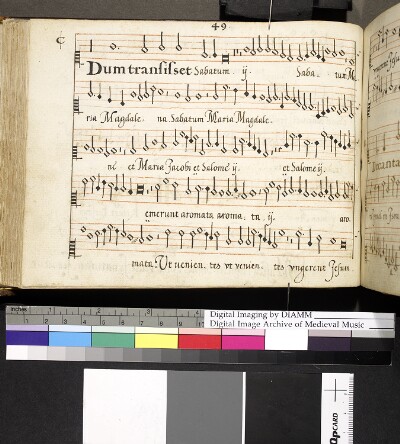 49
Dum transisset Sabatum ij. Saba. tum M
ria Magdale. na Sabatum Maria Magdale.
ne et Maria Jacobi et Salome ij. et Salome ij.
emerunt aromata aroma. ta ij. aro.
mata Ut venien. tes ut venien. tes ungerent Jesum
inches 1 2 3 4
Digital Imaging by DIAMM
Digital Image Archive of Medieval Music
QPCARD